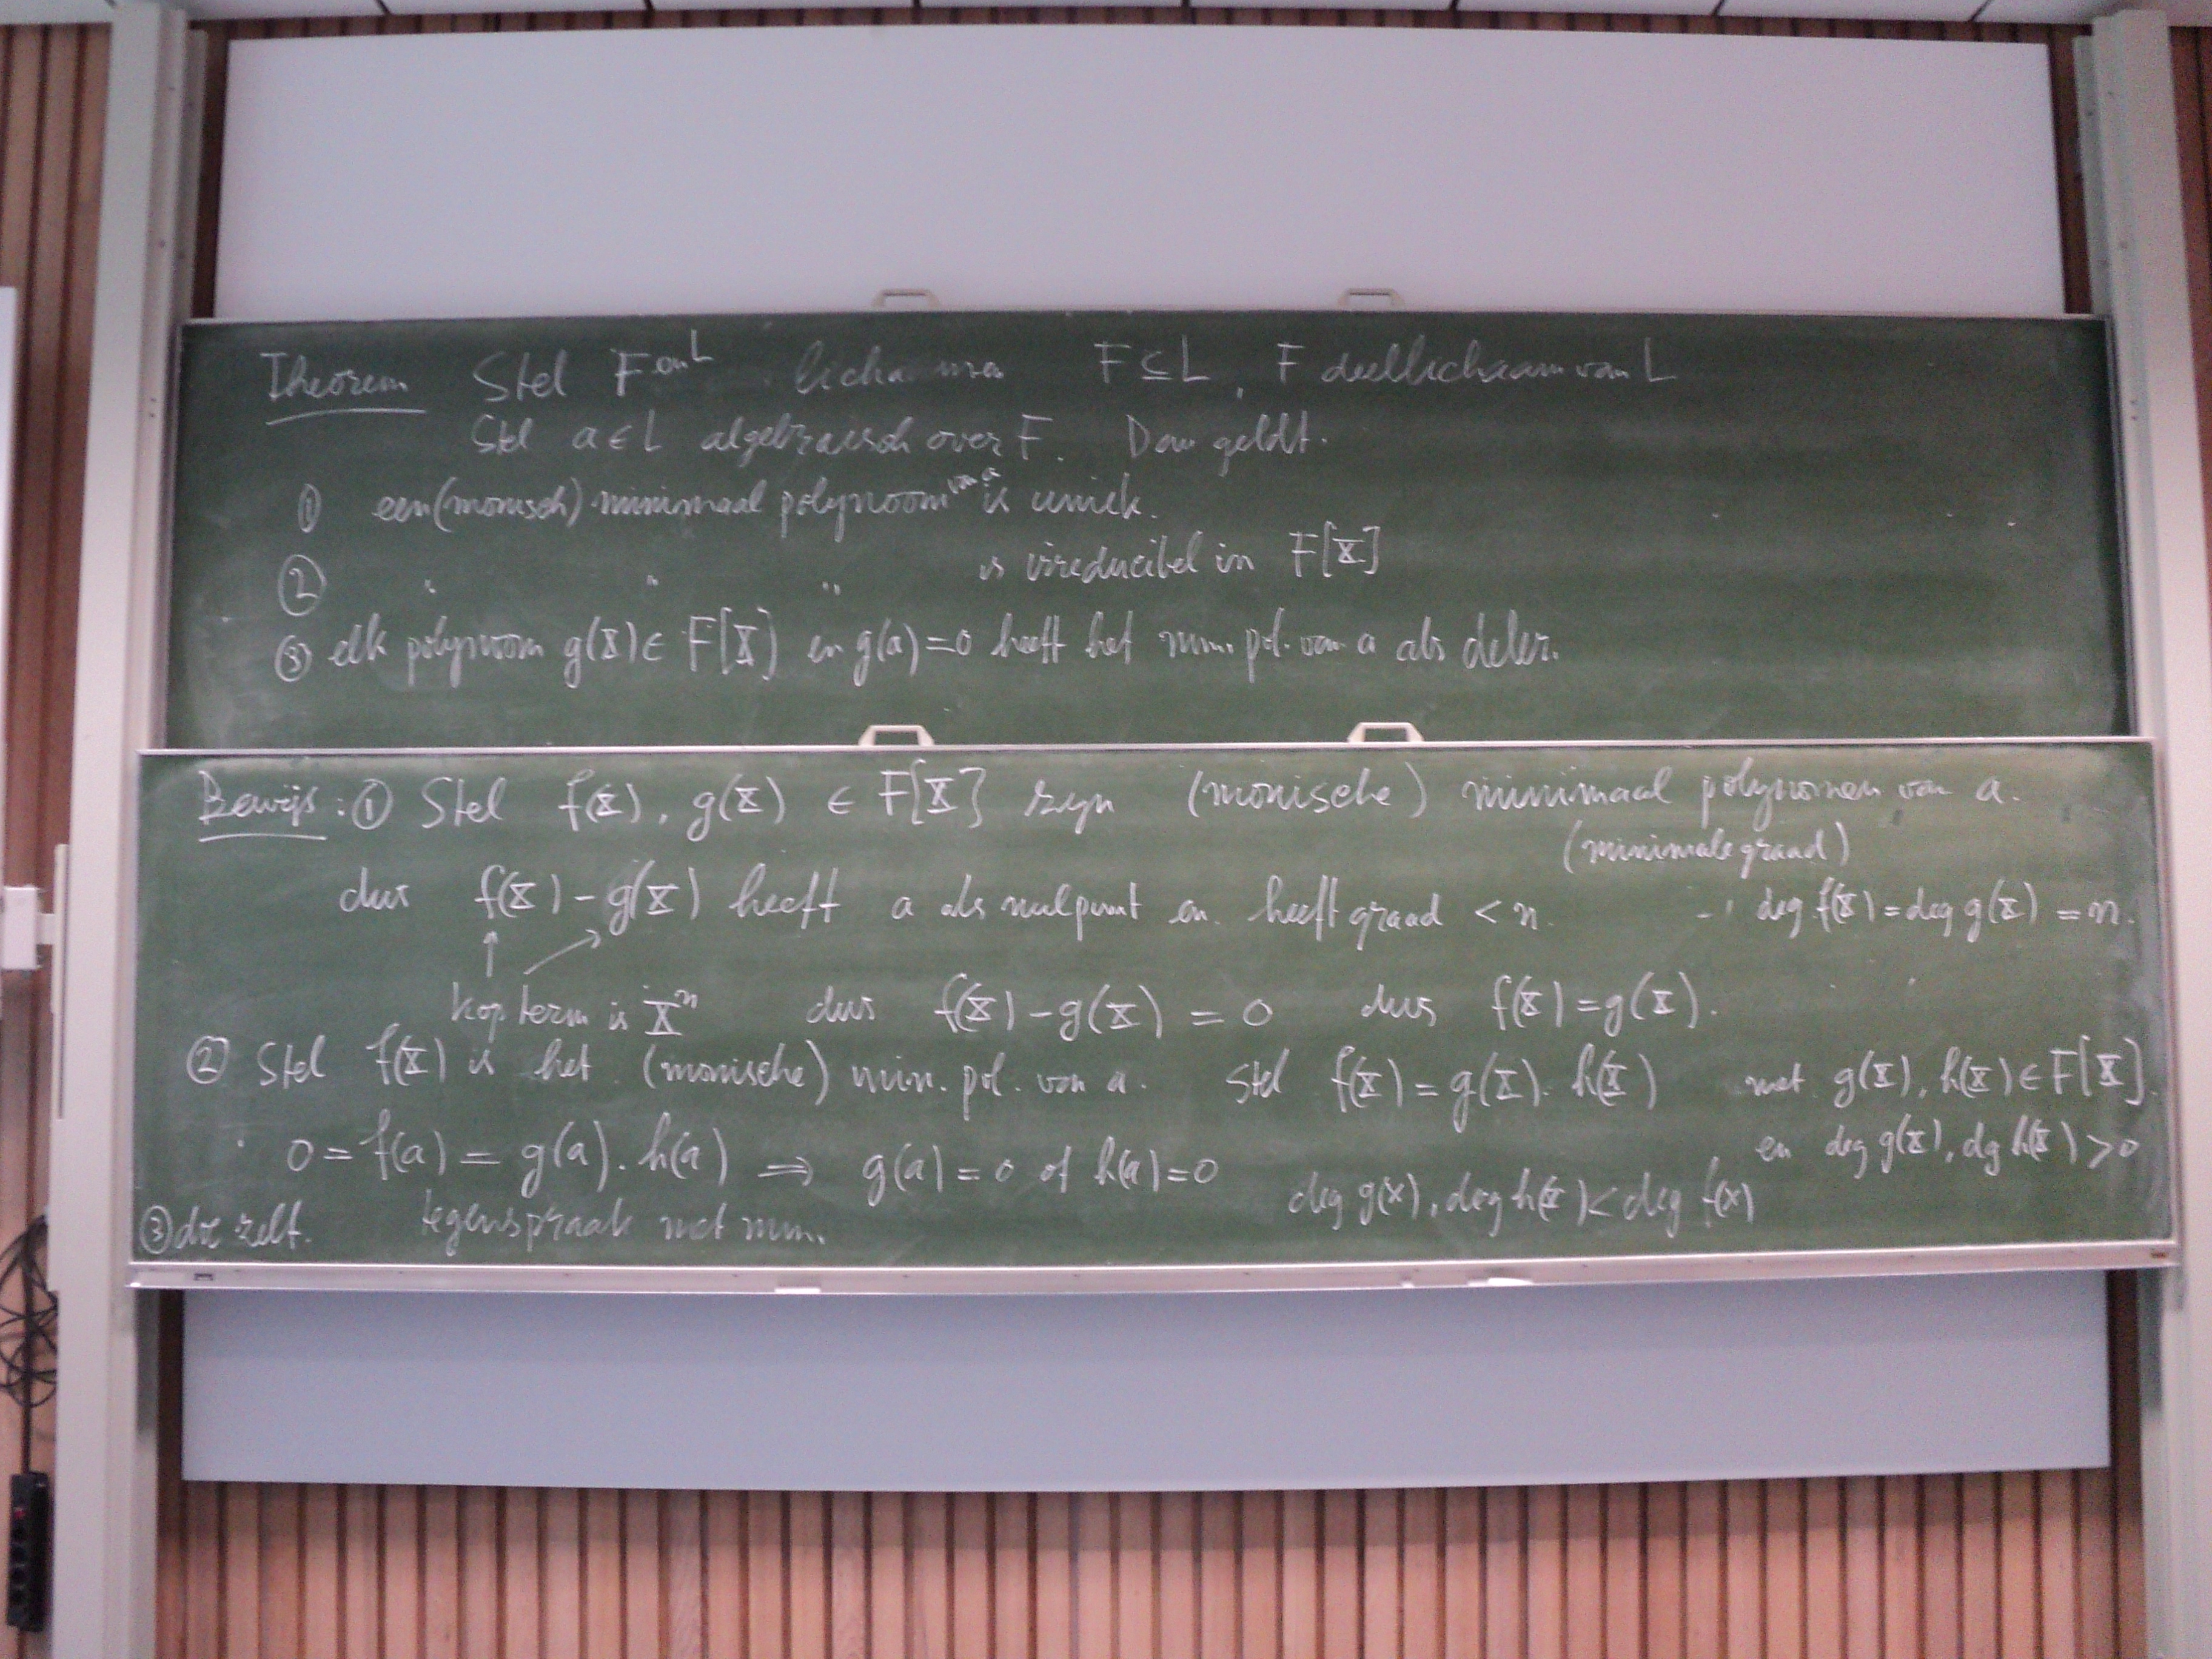 Theorem Stel F en L lichamen F ⊆ L, F deellichaam van L
Stel a ∈ L algebraisch over F. Dan geldt.
① een (monisch) minimaal polynoom van a is uniek.
② " " " is irreducibel in F[X]
③ elk polynoom g(X) ∈ F[X] en g(a)=0 heeft het min. pol. van a als deler.
Bewijs: ① Stel f(X), g(X) ∈ F[X] zijn (monische) minimaal polynomen van a.
(minimale graad)
dus f(X) - g(X) heeft a als nulpunt en heeft graad < n. deg f(X) = deg g(X) = n.
kopterm is Xⁿ dus f(X) - g(X) = 0 dus f(X) = g(X).
② Stel f(X) is het (monische) min. pol. van a. Stel f(X) = g(X). h(X) met g(X), h(X) ∈ F[X]
en deg g(X), dg h(X) > 0
0 = f(a) = g(a). h(a) ⇒ g(a) = 0 of h(a) = 0
deg g(X), deg h(X) < deg f(X)
tegenspraak met min.
③ doe zelf.